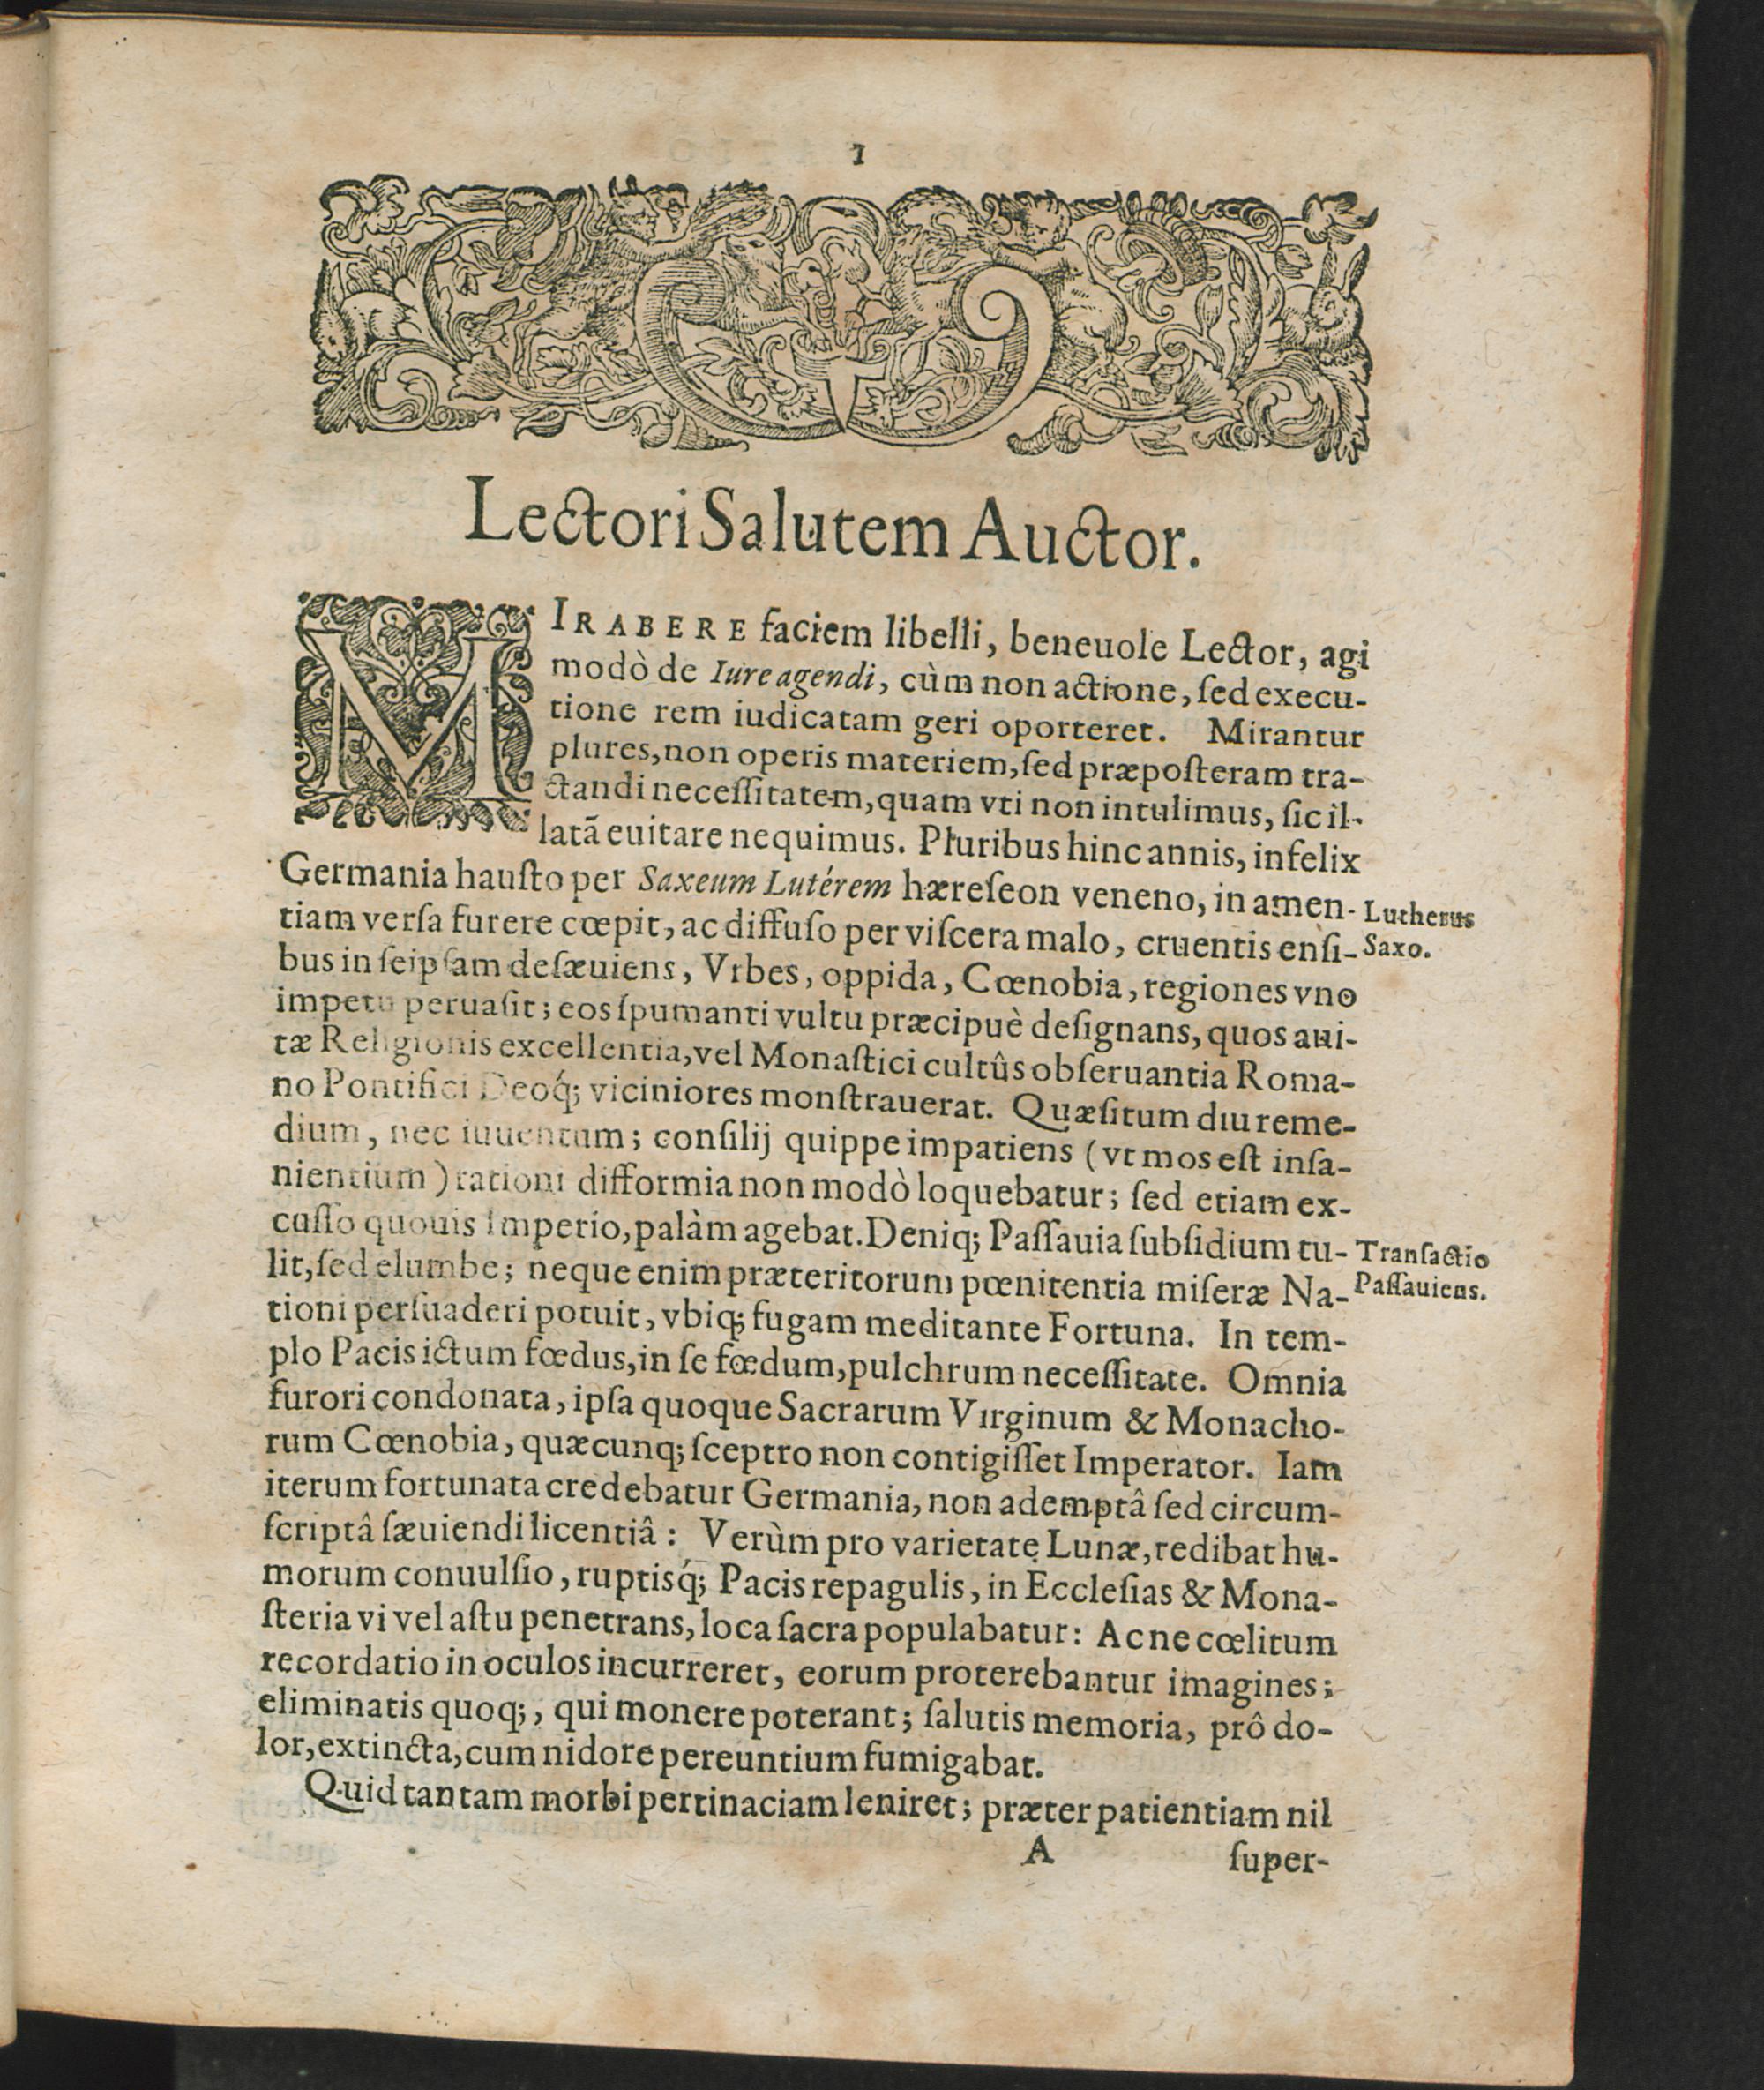 1
Lectori Salutem Auctor.
MIRABERE faciem libelli, beneuole Lector, agi
modò de Iure agendi, cùm non actione, ſed execu-
tione rem iudicatam geri oporteret. Mirantur
plures, non operis materiem, ſed præpoſteram tra-
ctandi neceſſitatem, quam vti non intulimus, ſic il-
latã euitare nequimus. Pluribus hinc annis, infelix
Germania hauſto per Saxeum Lutérem hæreſeon veneno, in amen-
Lutherus
tiam verſa furere cœpit, ac diffuſo per viſcera malo, cruentis enſi-
Saxo.
bus in ſeipſam deſæuiens, Vrbes, oppida, Cœnobia, regiones vno
impetu peruaſit; eos ſpumanti vultu præcipuè deſignans, quos aui-
tæ Religionis excellentia, vel Monaſtici cultûs obſeruantia Roma-
no Pontifici Deoq́; viciniores monſtrauerat. Quæſitum diu reme-
dium, nec iuuentum; conſilij quippe impatiens (vt mos eſt inſa-
nientium) rationi difformia non modò loquebatur; ſed etiam ex-
cuſſo quouis Imperio, palàm agebat. Deniq; Paſſauia ſubſidium tu-
Tranſactio
lit, ſed elumbe; neque enim præteritorum pœnitentia miſeræ Na-
Paſſauiens.
tioni perſuaderi potuit, vbiq; fugam meditante Fortuna. In tem-
plo Pacis ictum fœdus, in ſe fœdum, pulchrum neceſſitate. Omnia
furori condonata, ipſa quoque Sacrarum Virginum & Monacho-
rum Cœnobia, quæcunq; ſceptro non contigiſſet Imperator. Iam
iterum fortunata credebatur Germania, non ademptâ ſed circum-
ſcriptâ ſæuiendi licentiâ: Verùm pro varietate Lunæ, redibat hu-
morum conuulſio, ruptisq́; Pacis repagulis, in Eccleſias & Mona-
ſteria vi vel aſtu penetrans, loca ſacra populabatur: Ac ne cœlitum
recordatio in oculos incurreret, eorum proterebantur imagines;
eliminatis quoq;, qui monere poterant; ſalutis memoria, prô do-
lor, extincta, cum nidore pereuntium fumigabat.
Quid tantam morbi pertinaciam leniret; præter patientiam nil
A
ſuper-